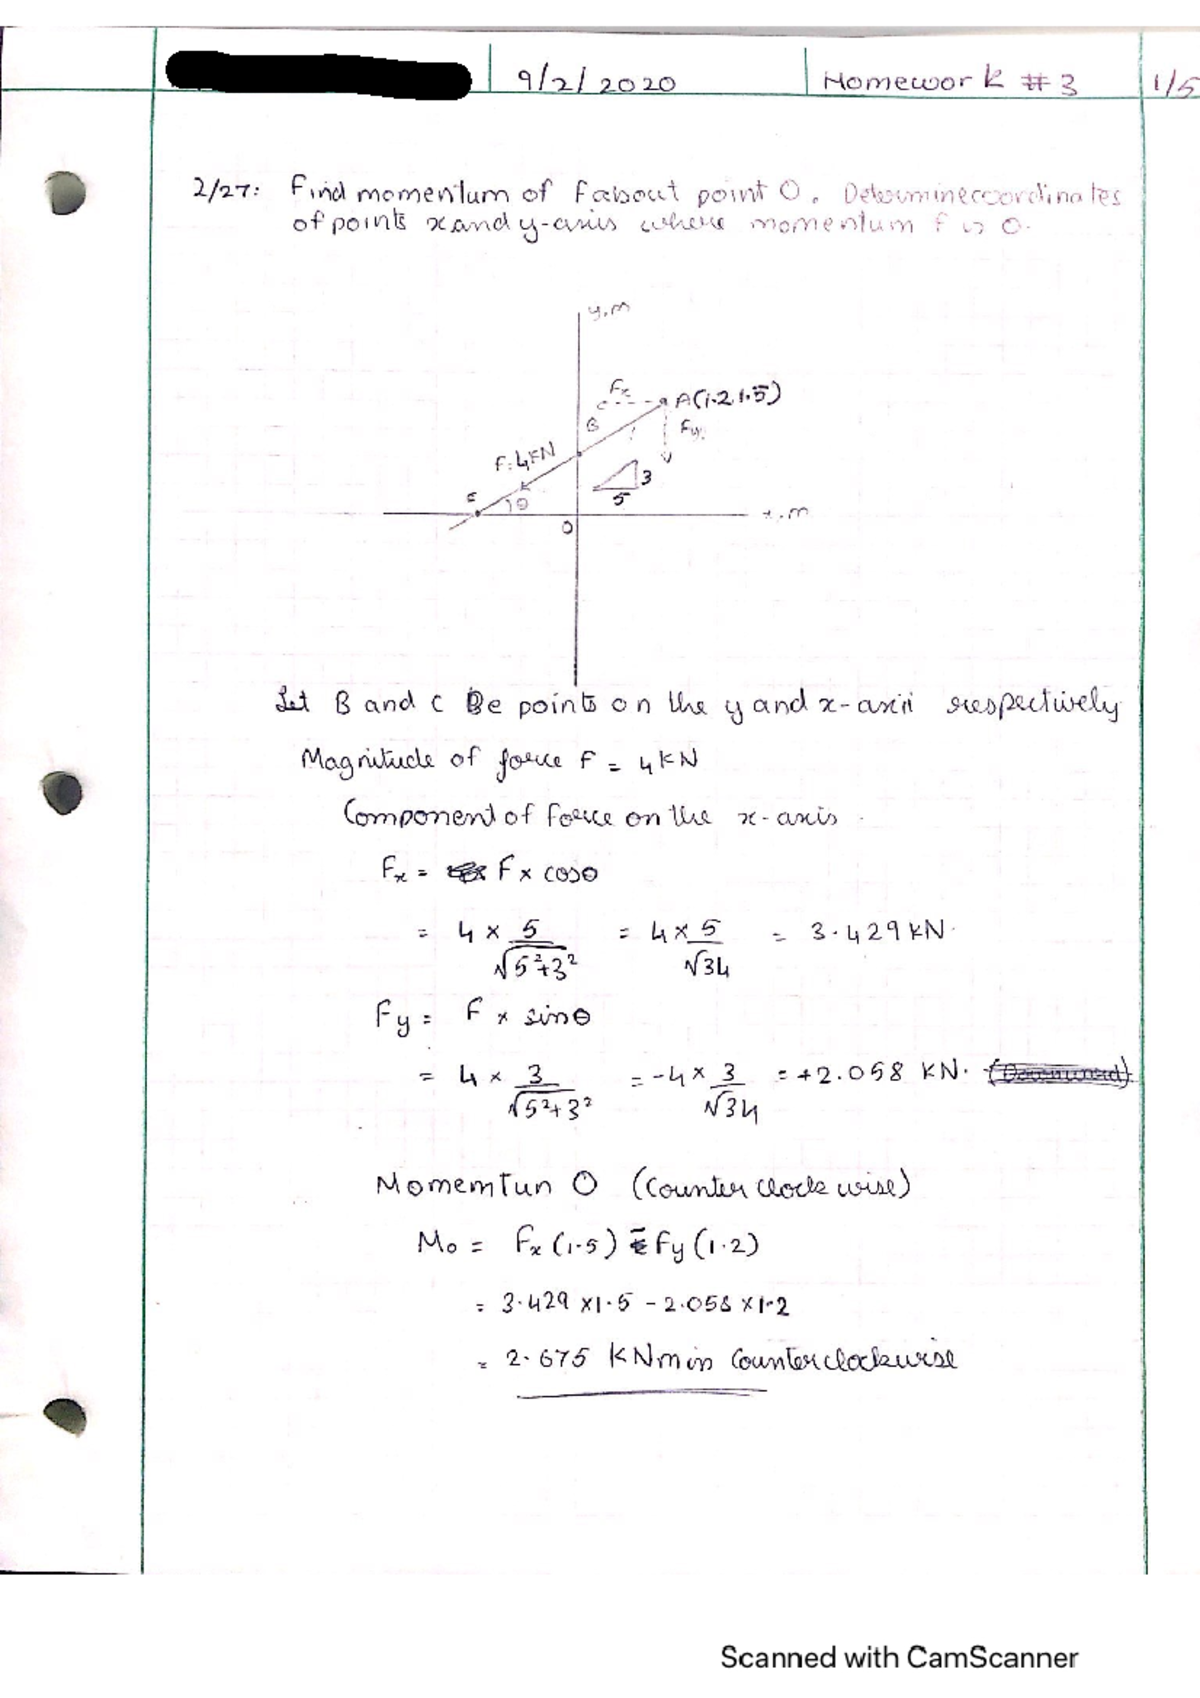 9/2/2020 Homework #3 1/5
2/27: Find momentum of f about point O. Determine coordinates
of points x and y-axis where momentum f is O.
y,m
Fx A(1.2 1.5)
B Fy
F:4KN
3
θ 5
x,m
O
Let B and C Be points on the y and x-axis respectively
Magnitude of force F = 4KN
Component of force on the x-axis.
Fx = F x cosθ
= 4 x 5/√5²+3² = 4x5/√34 = 3.429KN.
Fy = F x sinθ
= 4 x 3/√5²+3² = -4x3/√34 = +2.058 KN.
Momemtun O (Counter clock wise)
Mo = Fx (1.5) - Fy (1.2)
= 3.429 x1.5 - 2.058 x1.2
= 2.675 KNm in Counterclockwise
Scanned with CamScanner